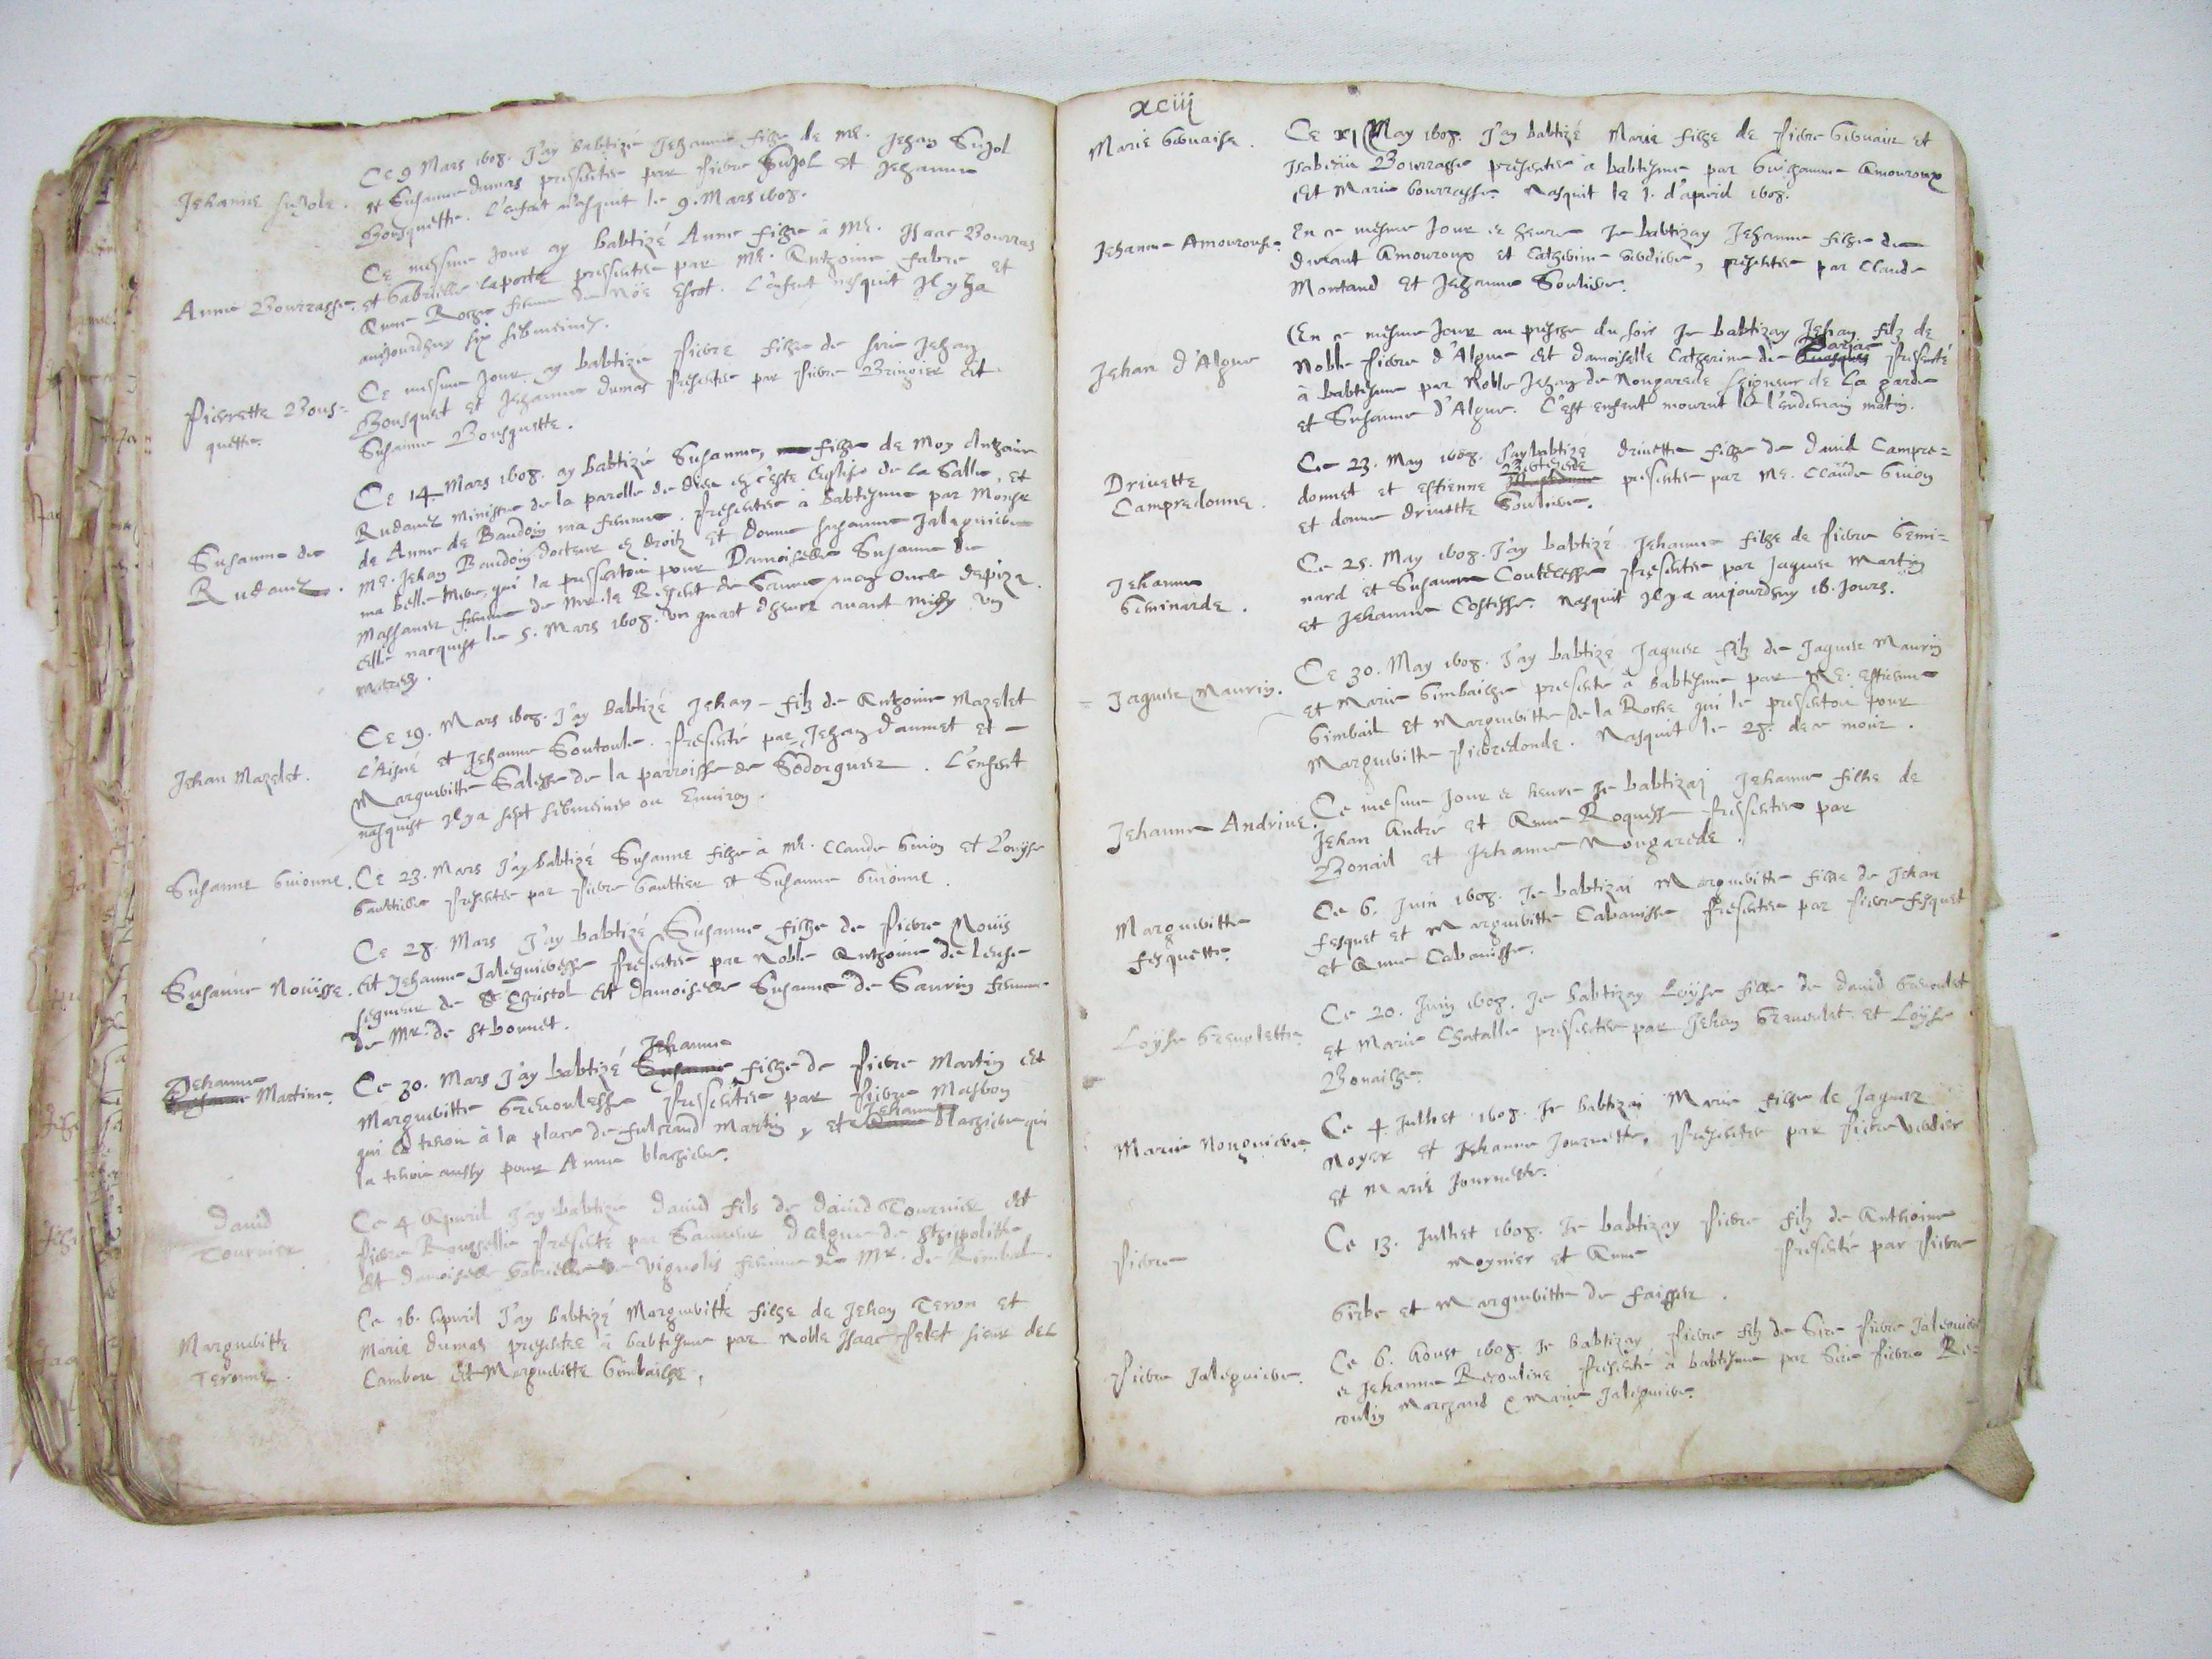 Jehanne Sujole.
Ce 9 Mars 1608. J'ay babtizé Jehanne filhe de Me. Jehan Sujol
et Susanne dumas presentee par Pierre Sujol et Jehanne
Bousquette. L'enfant nasquit le 9. Mars 1608.
Anne Bourrasse.
Ce mesme Jour ay babtizé Anne filhe à Me. Isaac Bourras
et Gabrielle Laporte presentee par Me. Anthoine fabre et
Anne Roche femme de Nöe Escot. L'enfant nasquit Il y ha
aujourdhuy six sebmeines.
Pierrette Bous=
quette.
Ce mesme Jour ay babtizée Pierre filhe de sire Jehan
Bousquet et Jehanne dumas presentee par Pierre Bringier et
Susanne Bousquette.
Susanne de
Rudavez.
Ce 14 Mars 1608. ay babtizé Susanne, filhe de Moy Anthoine
Rudavez Ministre de la parolle de Dieu en c'este Eglise de la Salle, et
de Anne de Baudoin ma femme. Presentee à babtesme par Monsr
Me. Jehan Baudoin docteur es droitz et donne Susanne Jalaguiere
ma belle mere, qui la presentoit pour Damoiselle Susanne de
Massanes femme de Mr. le Regent de Sanne mon oncle
Elle nacquist le 5. Mars 1608. un quart d'heure avant midy un
mecredy.
Jehan Mazelet.
Ce 19. Mars 1608. J'ay babtizé Jehan filz de Anthoine Mazelet
L'Aisné et Jehanne Soutoule. Presenté par Jehan daumet et
Margueritte Salesse de la parroisse de Sodorgues. L'enfant
nasquist Il y a sept sebmeines ou Environ.
Susanne Guionne.
Ce 23. Mars J'ay babtizé Susanne filhe à Me. Claude Guion et Louÿse
Gaultiere presentee par Pierre Gaultier et Susanne Guionne.
Susanne Nouïsse.
Ce 28. Mars J'ay babtizé Susanne filhe de Pierre Nouïs
et Jehanne Jaleguiesse presentee par Noble Anthoine de Leuse
seigneur de St Christol et damoiselle Susanne de Saurin femme
de Mr. de St bonnet.
Jehanne
Martine.
Jehanne
Ce 30. Mars J'ay babtizé Susanne filhe de Pierre Martin et
Margueritte Grevoulesse presentee par Pierre Masbon
qui la tenoit à la place de fulcrand Martin, et Jehanne blachiere qui
la tenoit aussy pour Anne blachiere.
David
Tournier
Ce 4 Apvril J'ay babtizé david fils de david Tournier et
Pierre Rousselle presenté par Sauveur d'algue de St hipolitte
et damoiselle Gabrielle de Vignolis femme de Mr. de Rimbal.
Marguerite
Teronne.
Ce 16. Apvril J'ay babtizé Marguerite filhe de Jehan Teron et
Marie Dumas presentee à babtesme par noble Isaac Pelet sieur del
Cambon et Marguerite Gimbailhe.
xciii
Marie Gervaise.
Ce xi May 1608. J'ay babtizé Marie filhe de Pierre Gervais et
Isabeau Bourrasse presentee à babtesme par Guilhaume Amouroux
et Marie bourrasse. Nasquit le 1. d'apvril 1608.
Jehanne Amourouse.
En ce mesme Jour et heure Je babtizay Jehanne filhe de
durant Amouroux et Catherine Verdiere, presentee par Claude
Montand et Jehanne Souliere.
Jehan d'Algue
En ce mesme Jour au presche du soir Je babtizay Jehan filz de
Noble Pierre d'Algue et damoiselle Catherine de Barjac Presenté
à babtesme par Noble Jehan de Nougarede seigneur de La garde
et Susanne d'Algue. C'est enfant mourut le lendemain matin.
Drivette
Campredonne.
Ce 23. May 1608. J'ay babtizé drivette filhe de david Campre=
donnet et Estienne presentee par Me. Claude Guion
et donne drivette Souliere.
Jehanne
Geminarde.
Ce 25. May 1608. J'ay babtizé Jehanne filhe de Pierre Gemi=
nard et Susanne Couteresse presentee par Jaques Martin
et Jehanne Costesse. Nasquit Il y a aujourdhuy 16. Jours.
Jaques Maurin.
Ce 30. May 1608. J'ay babtizé Jaques filz de Jaques Maurin
et Marie Gimbailhe presenté à babtesme par Me. Estienne
Gimbail et Marguerite de la Roche qui le presentoit pour
Marguerite Pieredonde. Nasquit le 28. de ce mois.
Jehanne Andrive.
Ce mesme Jour et heure Je babtizaj Jehanne filhe de
Jehan André et Anne Roquesse presentee par
Bonail et Jehanne Nougarede.
Marguerite
fesquette.
Ce 6. Juin 1608. Je babtizai Marguerite filhe de Jehan
fesquet et Marguerite Cabanisse presentee par Pierre fesquet
et Anne Cabanisse.
Loÿse Grevolette.
Ce 20. Juin 1608. Je babtizay Loÿse fille de david Grevoulet
et Marie Chatalle presentee par Jehan Grevoulet et Loÿse
Bonailhe.
Marie Nouguiere.
Ce 4 Julhet 1608. Je babtizai Marie filhe de Jaques
Noyer et Jehanne Journette, presentee par Pierre Verdier
et Marie Journette.
Pierre
Ce 13. Julhet 1608. Je babtizay Pierre filz de Anthoine
Moynier et Anne presenté par Pierre
Girbe et Marguerite de faisses.
Pierre Jaleguiere.
Ce 6. Aoust 1608. Je babtizay Pierre filz de Sire Pierre Jaleguier
et Jehanne Recouline Presenté à babtesme par Sire Pierre Re=
coulin Marchand & Marie Jaleguiere.